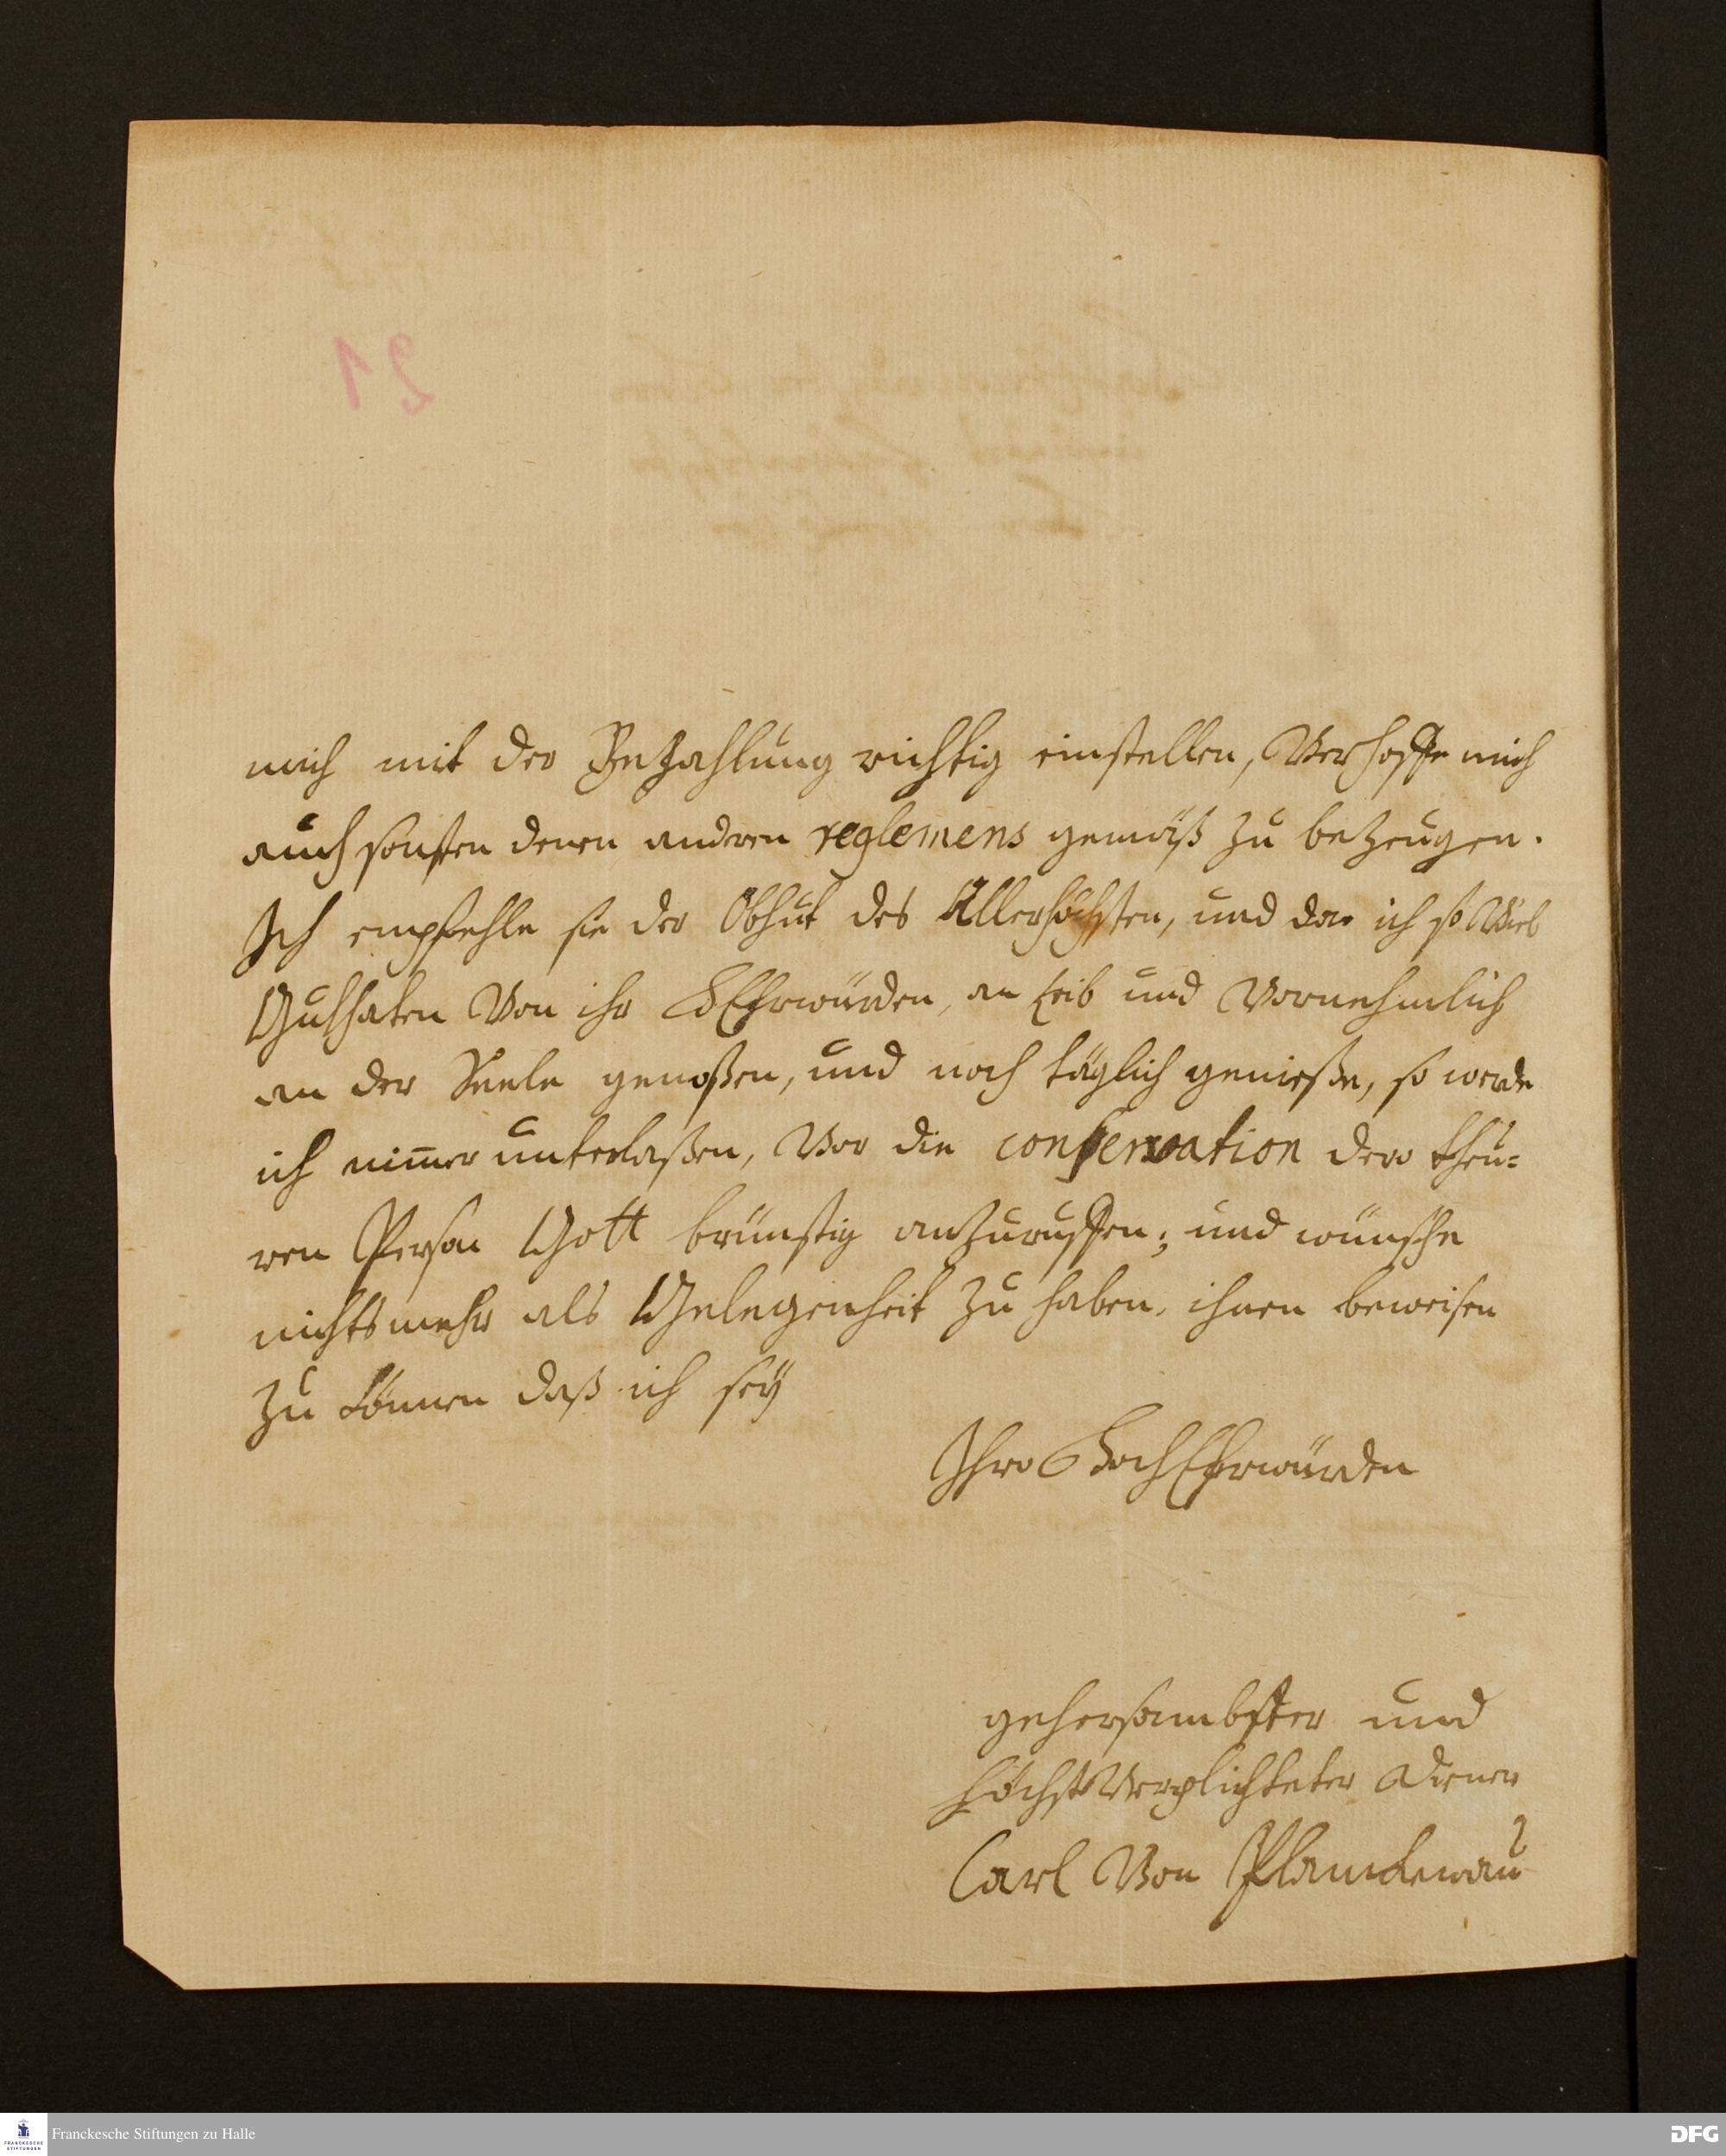 mich mit der Bezahlung richtig einstellen, Verhoffe mich
auch sonsten denen anderen reglemens gemäß zu bezeugen.
Ich empfehle sie der Obhut des Allerhöchsten, und da ich so Viel
Guthaten Von ihr HEhrwürden, an Leib und Vornehmlich
an der Seele genoßen, und noch täglich genieße, so werde
ich nim̄er unterlaßen, Vor die conservation dero theu=
ren Person Gott brünstig anzuruffen; und wünsche
nichts mehr als Gelegenheit zu haben, ihnen beweisen
zu können daß ich seÿ
Ihro HochEhrwürden
gehorsambster und
höchstVerplichteter Diener
Carl Von
Franckesche Stiftungen zu Halle
FRANCKESCHE STIFTUNGEN
DFG